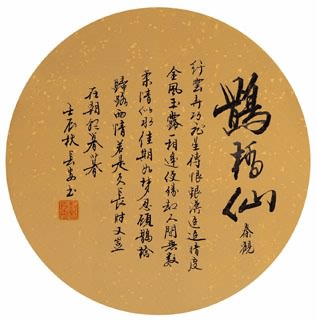 鵲橋仙
秦觀
纤雲弄巧飛星傳恨銀漢迢迢暗度
金風玉露一相逢便勝却人間無數
柔情似水佳期如夢忍顧鵲橋
歸路兩情若是久長時又豈
在朝朝暮暮
壬辰秋 書